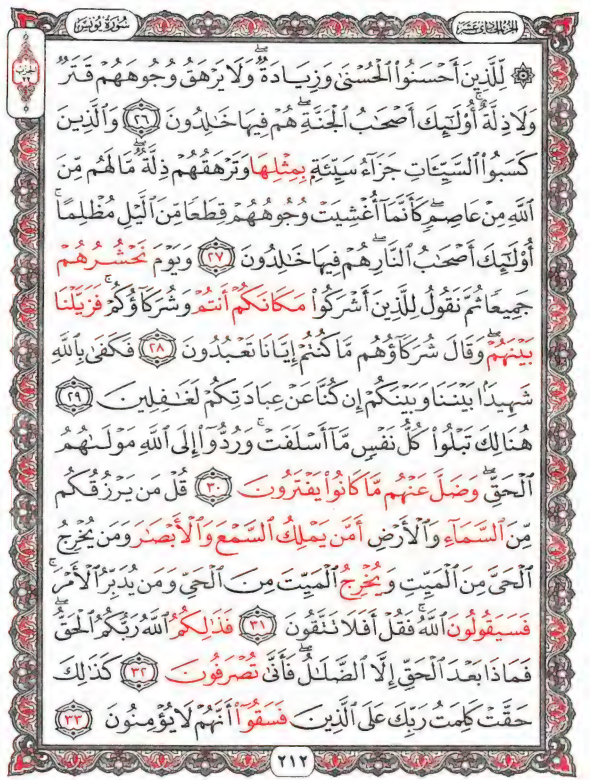 سورة يونس
الجزء الحادي عشر
الحزب
٢٢
۞ لِّلَّذِينَ أَحْسَنُوا۟ ٱلْحُسْنَىٰ وَزِيَادَةٌ ۖ وَلَا يَرْهَقُ وُجُوهَهُمْ قَتَرٌ
وَلَا ذِلَّةٌ ۚ أُو۟لَـٰٓئِكَ أَصْحَـٰبُ ٱلْجَنَّةِ ۖ هُمْ فِيهَا خَـٰلِدُونَ ٢٦ وَٱلَّذِينَ
كَسَبُوا۟ ٱلسَّيِّـَٔاتِ جَزَآءُ سَيِّئَةٍۭ بِمِثْلِهَا وَتَرْهَقُهُمْ ذِلَّةٌ ۖ مَّا لَهُم مِّنَ
ٱللَّهِ مِنْ عَاصِمٍ ۖ كَأَنَّمَآ أُغْشِيَتْ وُجُوهُهُمْ قِطَعًا مِّنَ ٱلَّيْلِ مُظْلِمًا ۚ
أُو۟لَـٰٓئِكَ أَصْحَـٰبُ ٱلنَّارِ ۖ هُمْ فِيهَا خَـٰلِدُونَ ٢٧ وَيَوْمَ نَحْشُرُهُمْ
جَمِيعًا ثُمَّ نَقُولُ لِلَّذِينَ أَشْرَكُوا۟ مَكَانَكُمْ أَنتُمْ وَشُرَكَآؤُكُمْ ۚ فَزَيَّلْنَا
بَيْنَهُمْ ۖ وَقَالَ شُرَكَآؤُهُم مَّا كُنتُمْ إِيَّانَا تَعْبُدُونَ ٢٨ فَكَفَىٰ بِٱللَّهِ
شَهِيدًۢا بَيْنَنَا وَبَيْنَكُمْ إِن كُنَّا عَنْ عِبَادَتِكُمْ لَغَـٰفِلِينَ ٢٩
هُنَالِكَ تَبْلُوا۟ كُلُّ نَفْسٍ مَّآ أَسْلَفَتْ ۚ وَرُدُّوٓا۟ إِلَى ٱللَّهِ مَوْلَىٰهُمُ
ٱلْحَقِّ ۖ وَضَلَّ عَنْهُم مَّا كَانُوا۟ يَفْتَرُونَ ٣٠ قُلْ مَن يَرْزُقُكُم
مِّنَ ٱلسَّمَآءِ وَٱلْأَرْضِ أَمَّن يَمْلِكُ ٱلسَّمْعَ وَٱلْأَبْصَـٰرَ وَمَن يُخْرِجُ
ٱلْحَىَّ مِنَ ٱلْمَيِّتِ وَيُخْرِجُ ٱلْمَيِّتَ مِنَ ٱلْحَىِّ وَمَن يُدَبِّرُ ٱلْأَمْرَ ۚ
فَسَيَقُولُونَ ٱللَّهُ ۚ فَقُلْ أَفَلَا تَتَّقُونَ ٣١ فَذَٰلِكُمُ ٱللَّهُ رَبُّكُمُ ٱلْحَقُّ ۖ
فَمَاذَا بَعْدَ ٱلْحَقِّ إِلَّا ٱلضَّلَـٰلُ ۖ فَأَنَّىٰ تُصْرَفُونَ ٣٢ كَذَٰلِكَ
حَقَّتْ كَلِمَتُ رَبِّكَ عَلَى ٱلَّذِينَ فَسَقُوٓا۟ أَنَّهُمْ لَا يُؤْمِنُونَ ٣٣
٢١٢